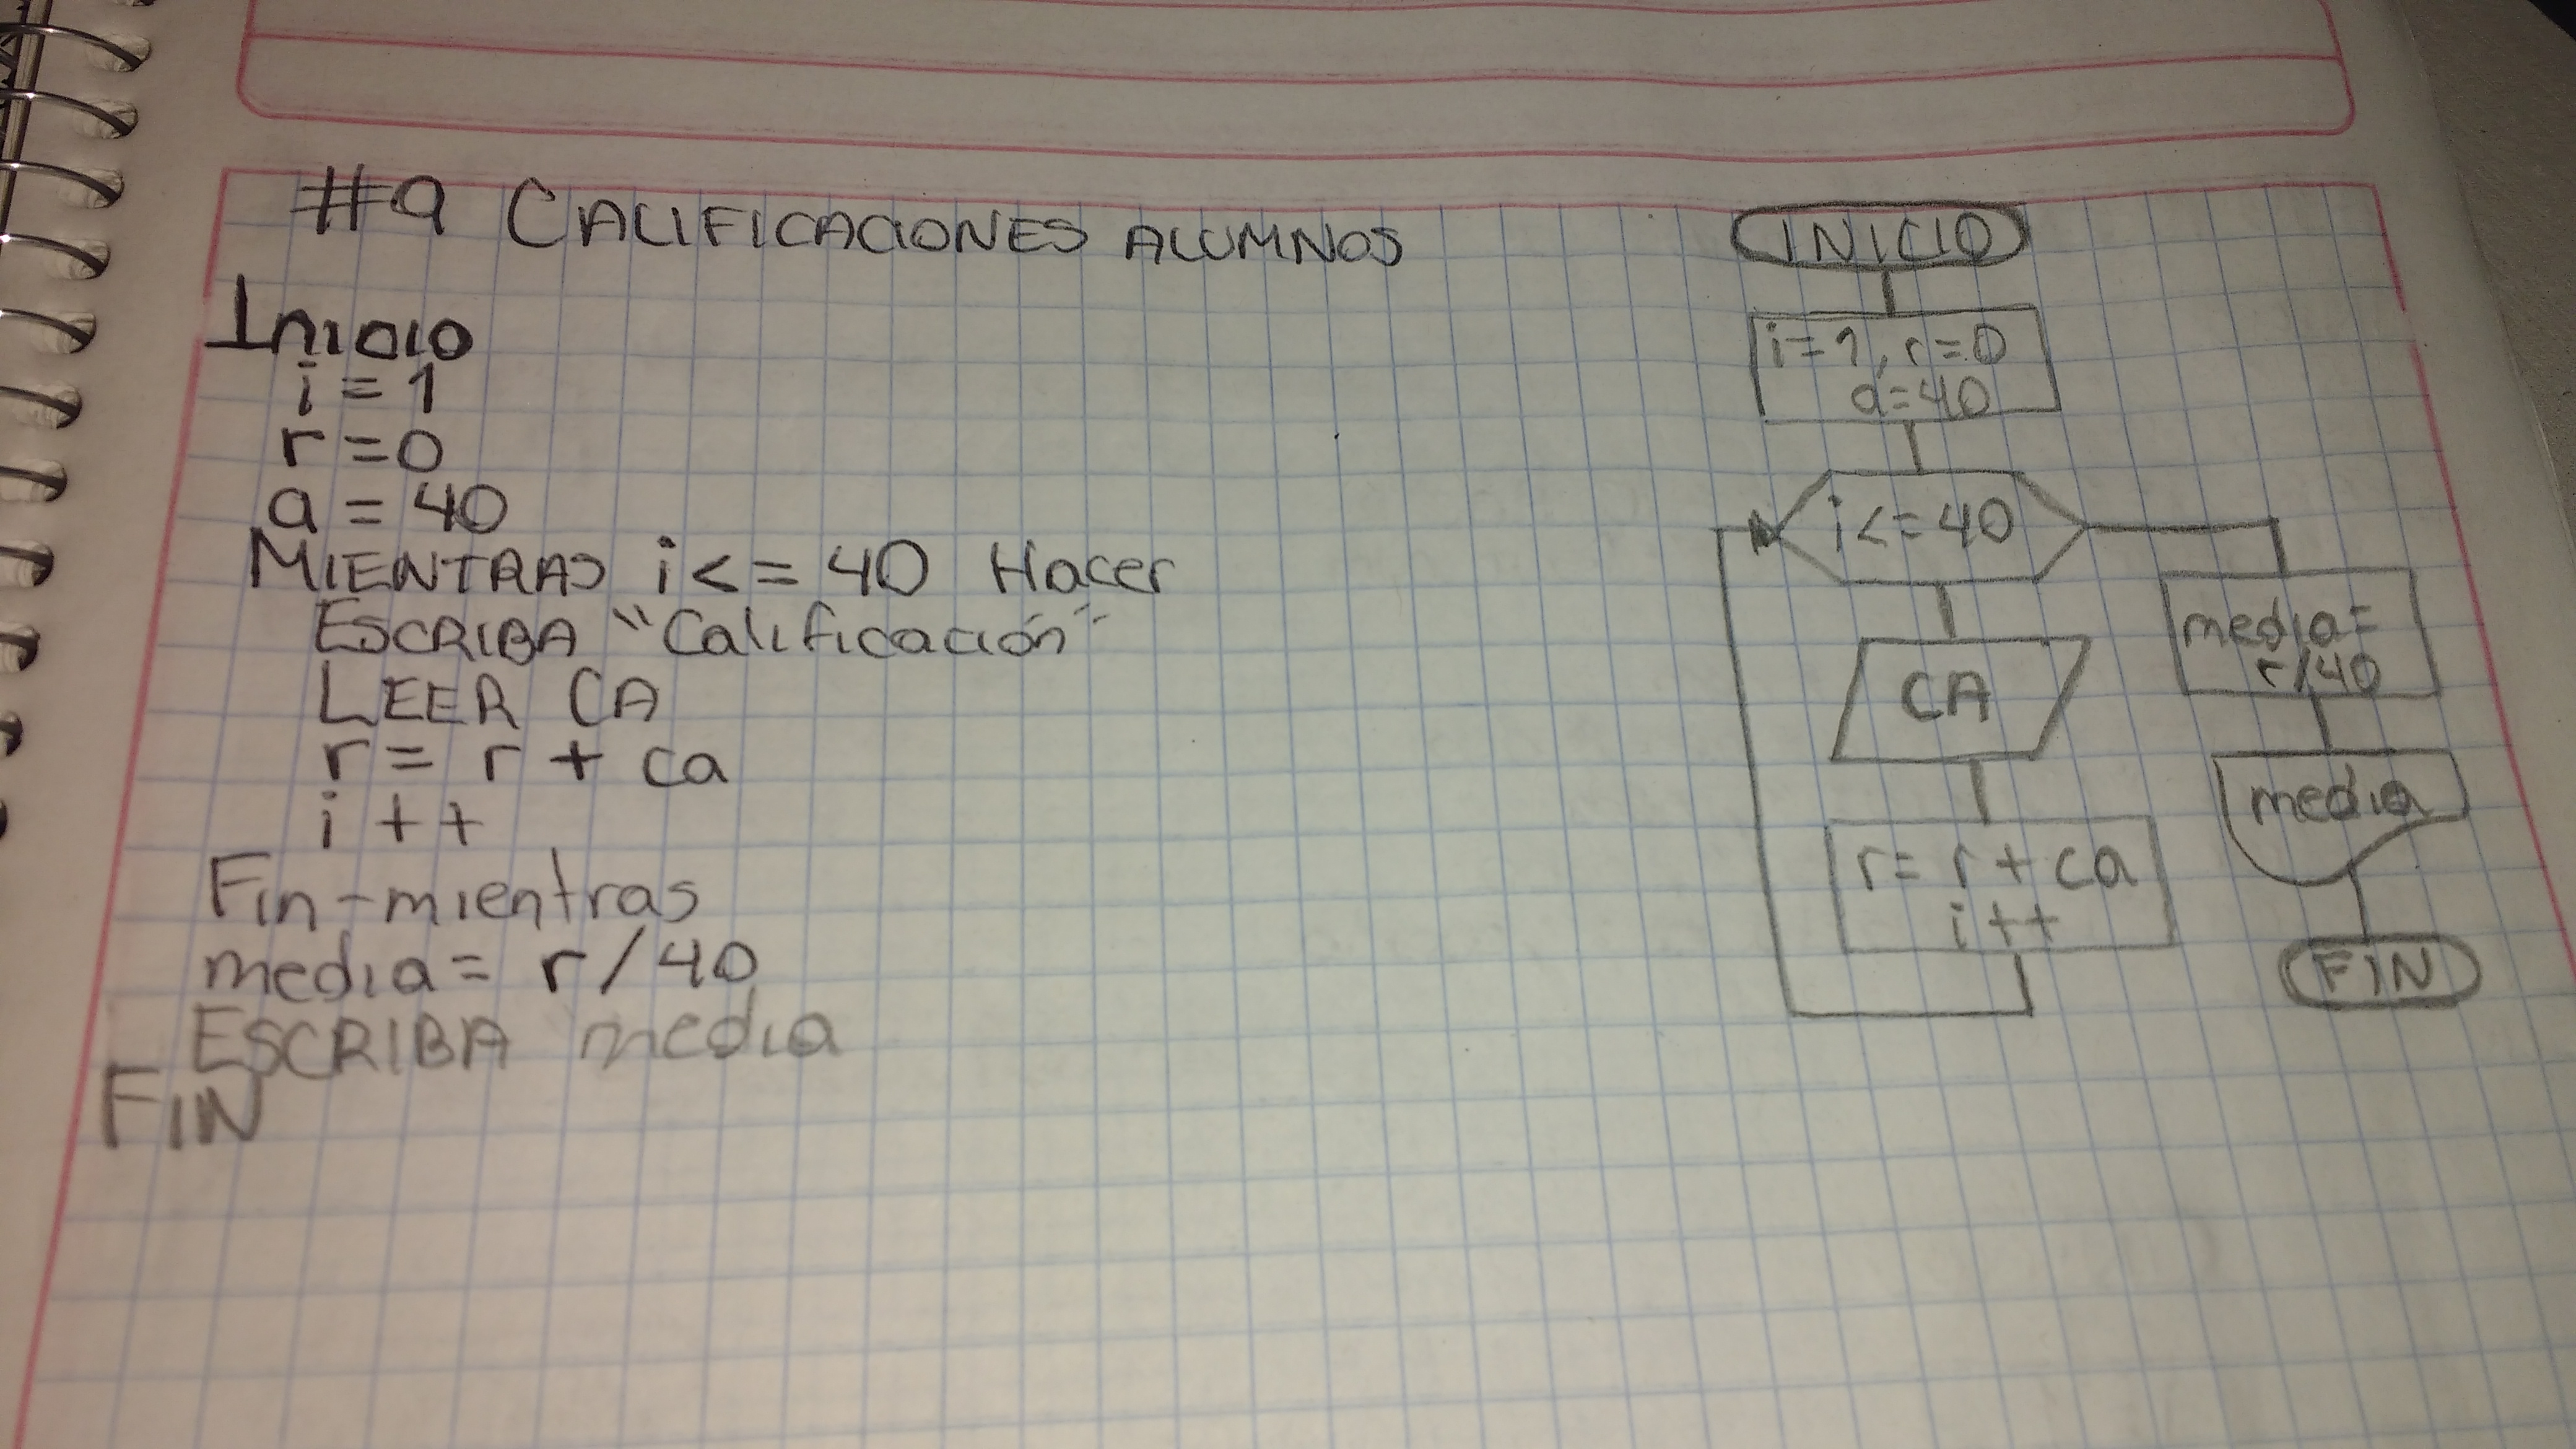 #9 CALIFICACIONES ALUMNOS
Inicio
i = 1
r = 0
a = 40
MIENTRAS i <= 40 Hacer
ESCRIBA "Calificación"
LEER CA
r = r + ca
i ++
Fin-mientras
media = r/40
ESCRIBA media
FIN
INICIO
i=1, r=0
a=40
i<=40
CA
r= r + ca
i ++
media=
r/40
media
FIN